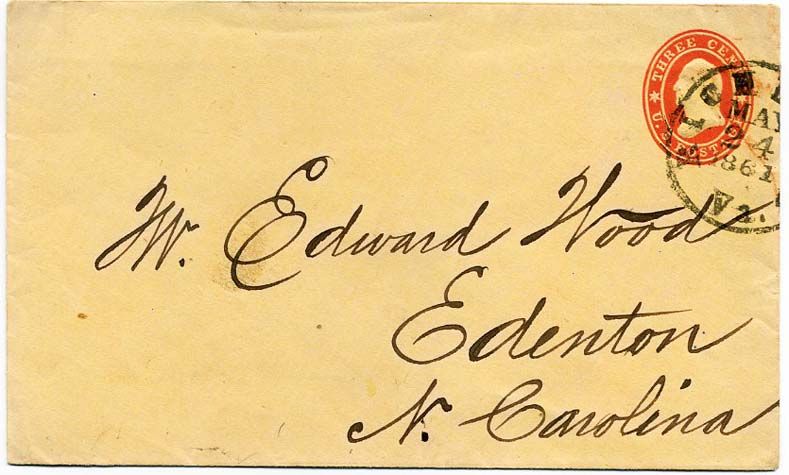 THREE CEN
U.S. POSTAGE
MAY
24
1861
Va.
Mr. Edward Wood
Edenton
N. Carolina